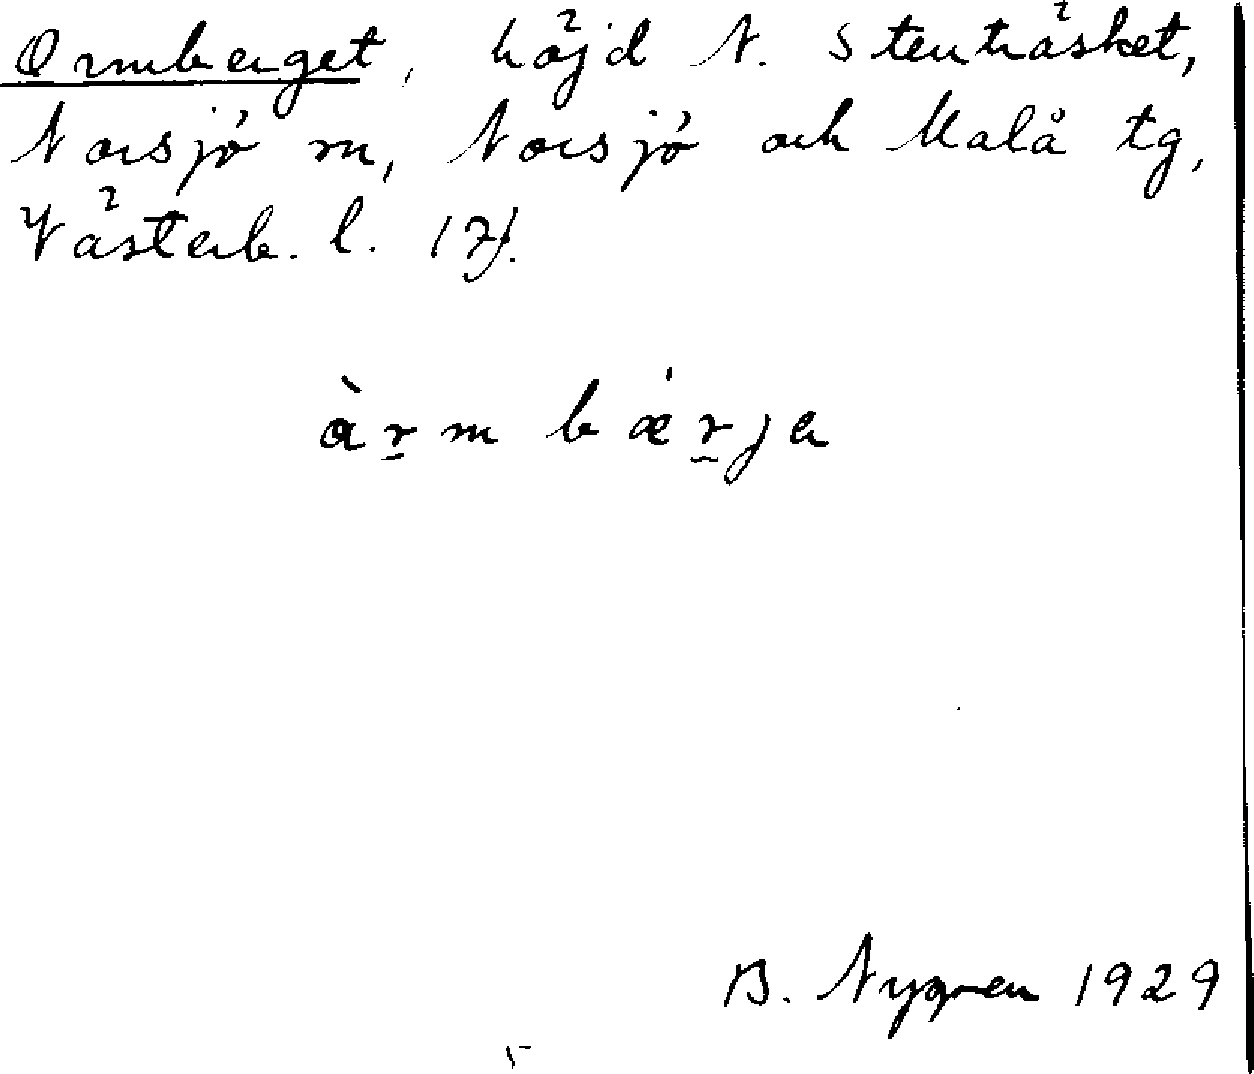 Ormberget, höjd N. Stenträsket,
Norsjö sn, Norsjö och Malå tg,
Västerb. l.
àr̲m bær̲ja
B. Nygren 1929